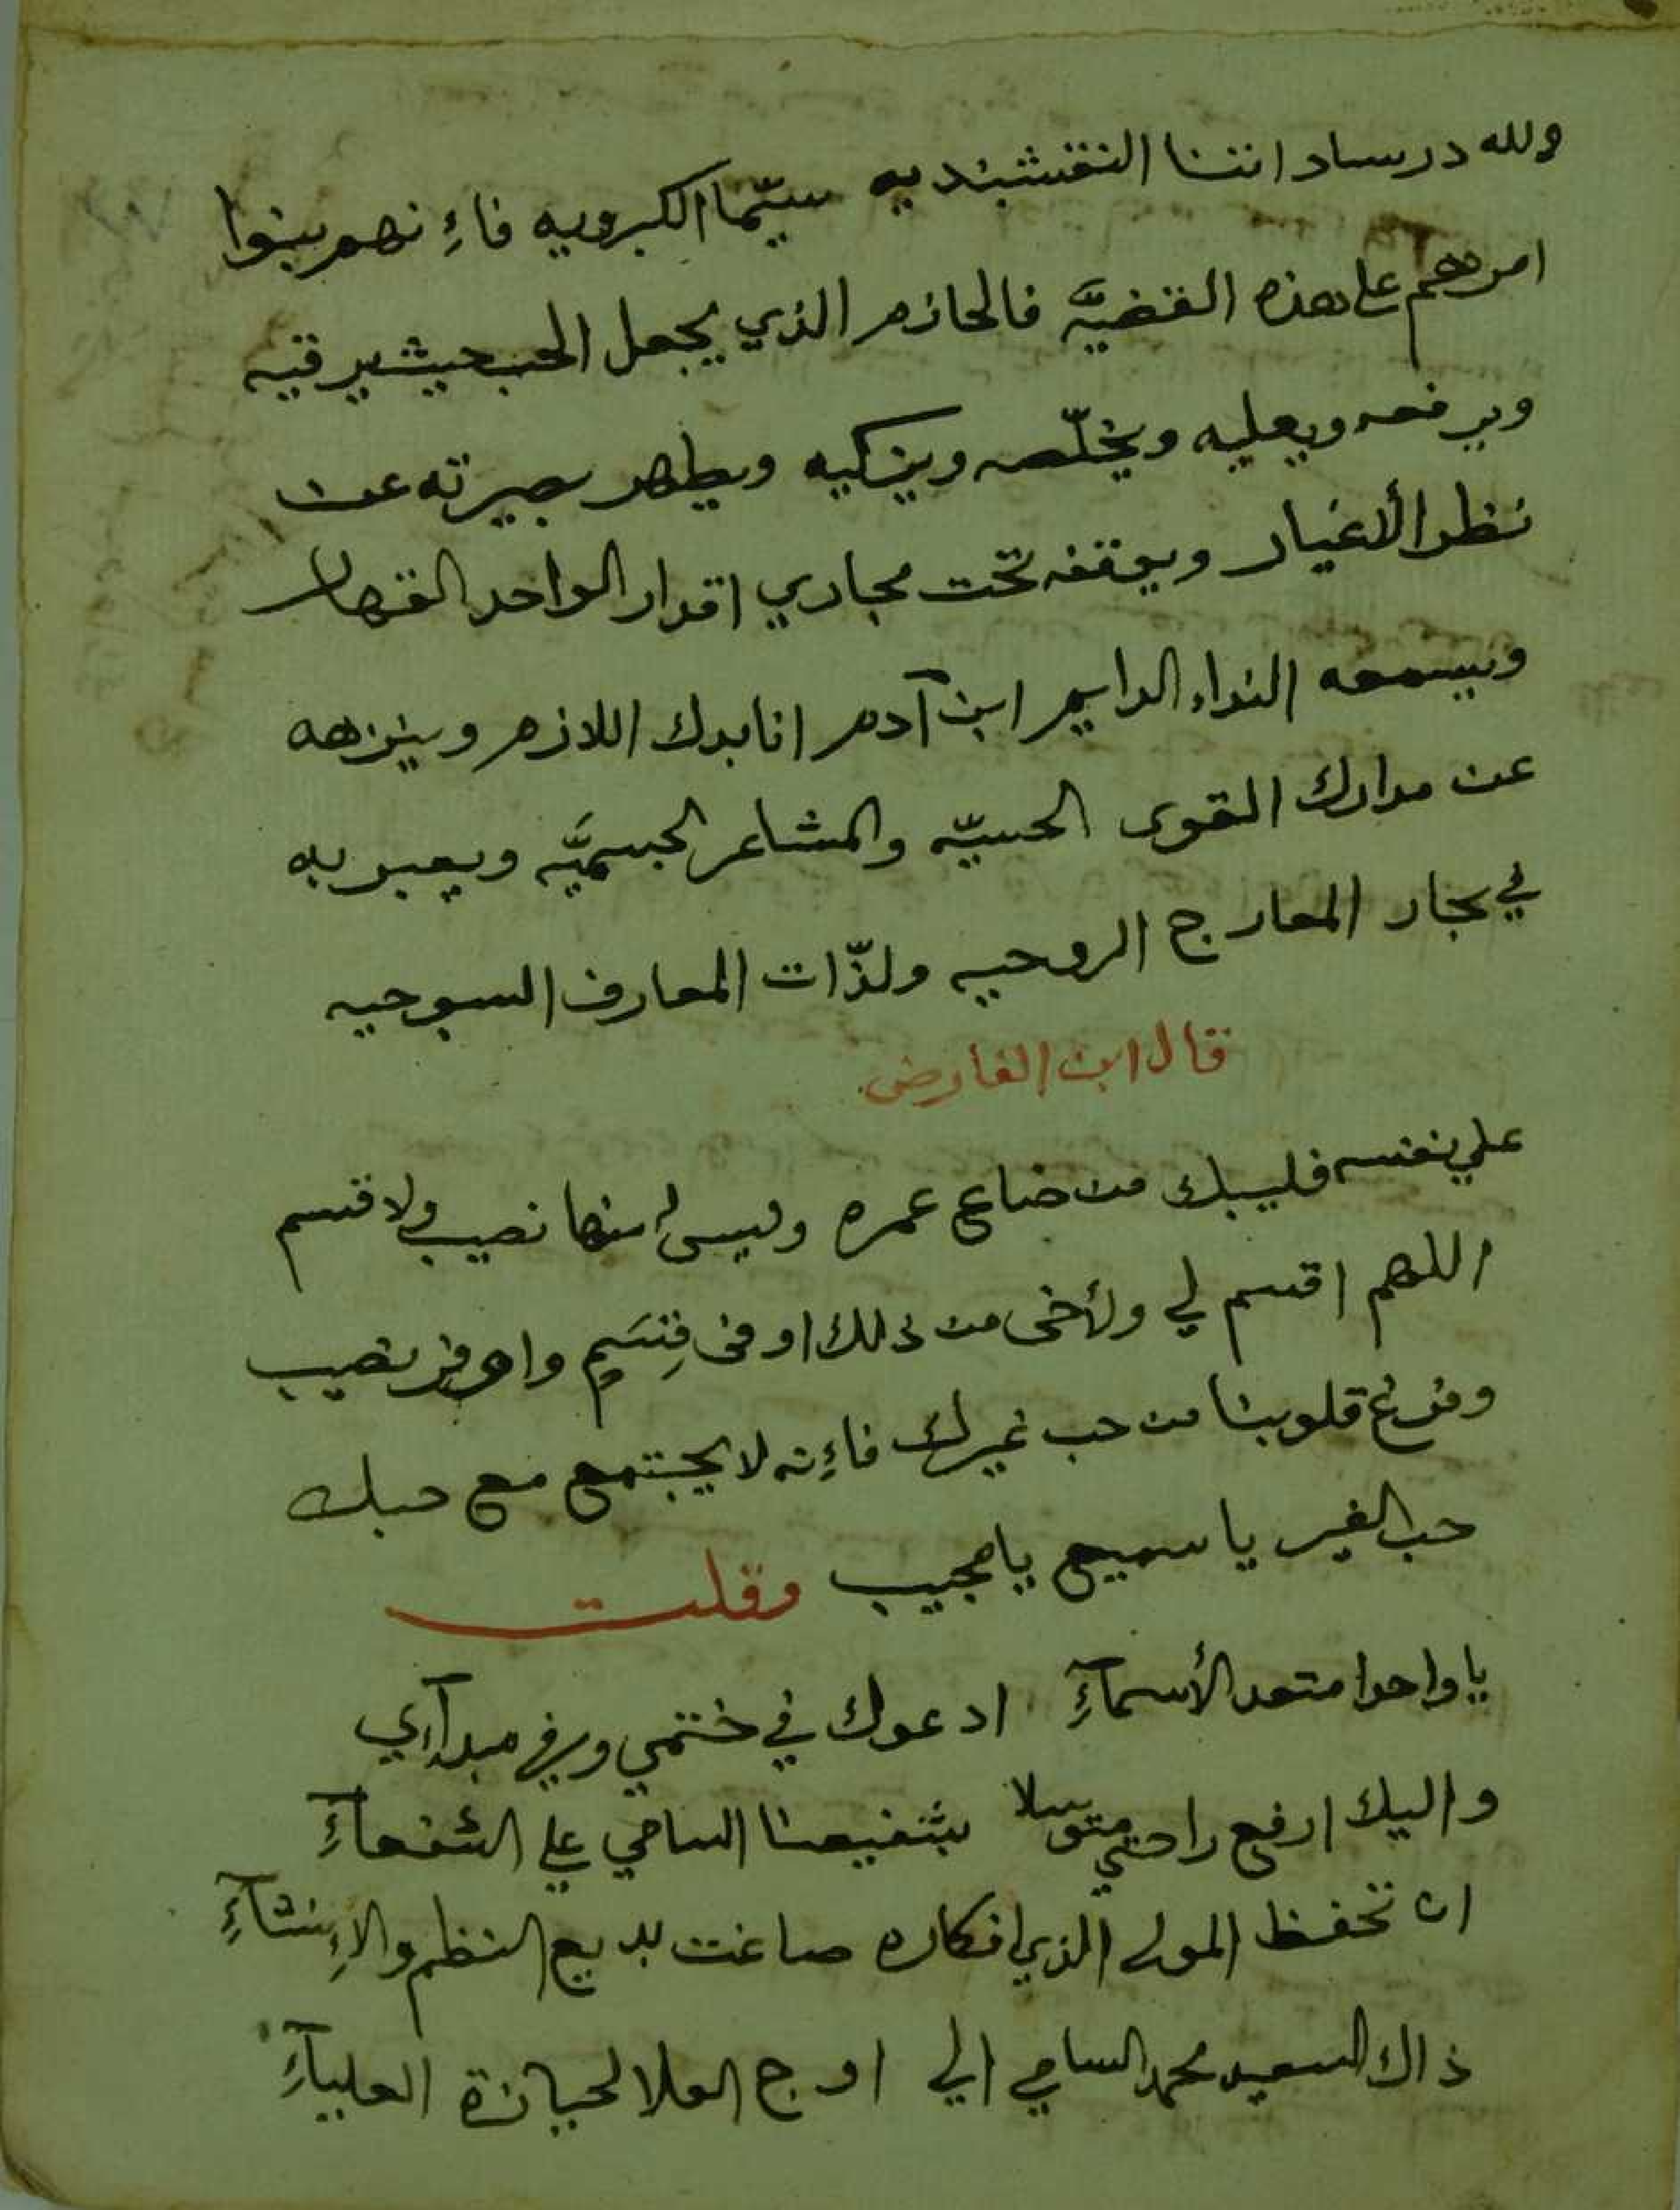 ولله در ساداتنا النقشبنديه سيّما الكبرويه فاءِنهم بنوا
امرهم على هذه القضيَّه فالحازم الذي يجعل الحب حيث يرقيه
ويرفعه ويعليه ويخلّصه ويزكيه ويطهر بصيرته عن
نظر الأغيار ويوقفه تحت مجاري اقدار الواحد القهار
ويسمعه النداء الدايم ابن آدم انا بدك اللازم وينزهه
عن مدارك القوى الحسيّه والمشاعر الجسميَّه ويعبر به
في بحار المعارج الروحيه ولذّات المعارف السبوحيه
قال ابن الفارض
على نفسه فليبك من ضاع عمره وليس له منها نصيب ولا قسم
اللهم اقسم لي ولأخى من ذلك اوفى قِسَمٍ واوفر نصيب
وفرغ قلوبنا من حب غيرك فاءِنه لا يجتمع مع حبك
حب الغير يا سميع يا مجيب وقلت
يا واحدا متعدد الأسمآءِ ادعوك في ختمي وفي مبدآءي
واليك ارفع راحتي متوسلا بشفيعنا السامي علي الشفعآءِ
ان تحفظ المولى الذي افكاره صاغت بديع النظم والاِنشآءِ
ذاك السعيد محمد السامي الي اوج العلا لحيازة العليآءِ